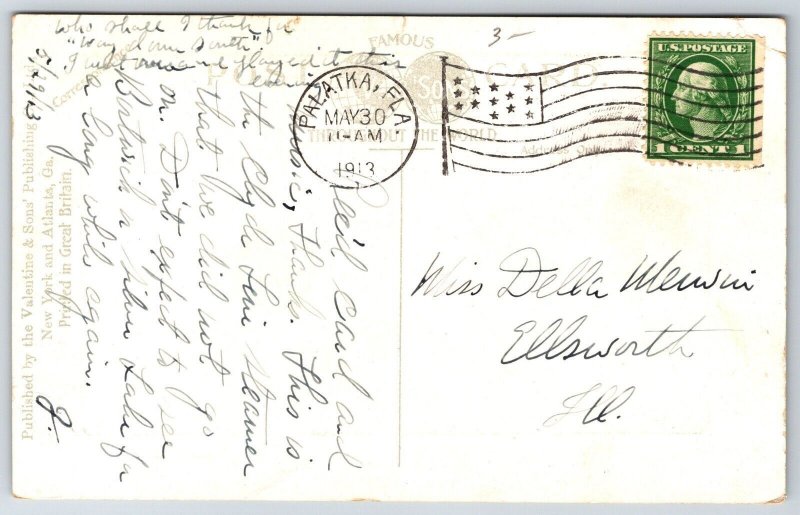 who shall I thank for
"Way down south"
I went over and played it this
evening
5/29/13
Rec'd card and
Music, thanks. This is
the Clyde Line Steamer
that we did not go
on. Don't expect to see
Bostwick or Silver Lake for
a long while again.
J.
FAMOUS
POST CARD.
THROUGHOUT THE WORLD
3-
PALATKA, FLA.
MAY 30
AM
1913
U.S. POSTAGE
1 CENT 1
Miss Della Merwin
Ellsworth
Ill.
Published by the Valentine & Sons' Publishing
New York and Atlanta, Ga.
Printed in Great Britain.